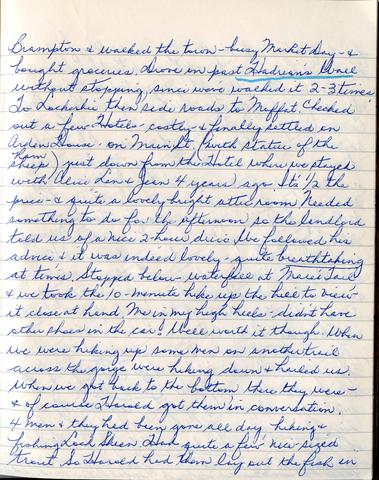 Brampton & walked the town - busy Market Day - &
bought groceries. Drove on past Hadrian's Wall
without stopping, since we've walked it 2-3 times
To Lockerbie then side roads to Moffat. Checked
out a few Hotels - costly & finally settled on
Arden House - on Main St. (with statue of the
Ram
sheep) just down from the Hotel where we stayed
with Alvie, Len & Jean 4 years ago. It's 1/2 the
price - & quite a lovely bright attic room. Needed
something to do for the afternoon so the landlord
told us of a nice 2-hour drive. We followed his
advice & it was indeed lovely - quite breathtaking
at times. Stopped below waterfall at Mare's Tail
& we took the 10-minute hike up the hill to view
it close at hand. Me in my high heels - didn't have
other shoes in the car. Well worth it though. When
we were hiking up some men on another trail
across the gorge were hiking down & hailed us.
When we got back to the bottom there they were -
& of course Harold got them in conversation.
4 men & they had been gone all day hiking &
fishing Loch Skeen. Had quite a few nice-sized
trout. So Harold had them lay out the fish on